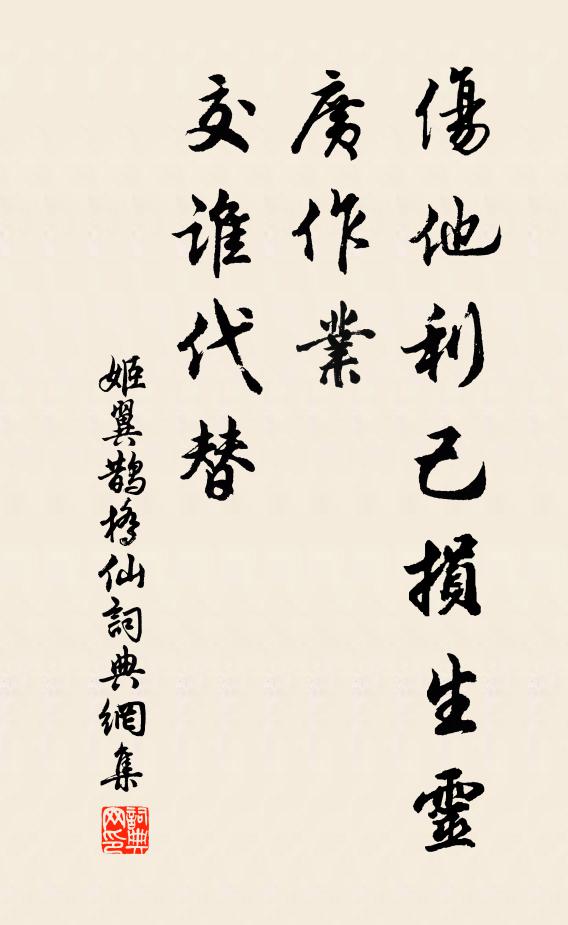 傷他利己損生靈
廣作業
交誰代替
姬翼鵲橋仙詞典網集
詞典網印